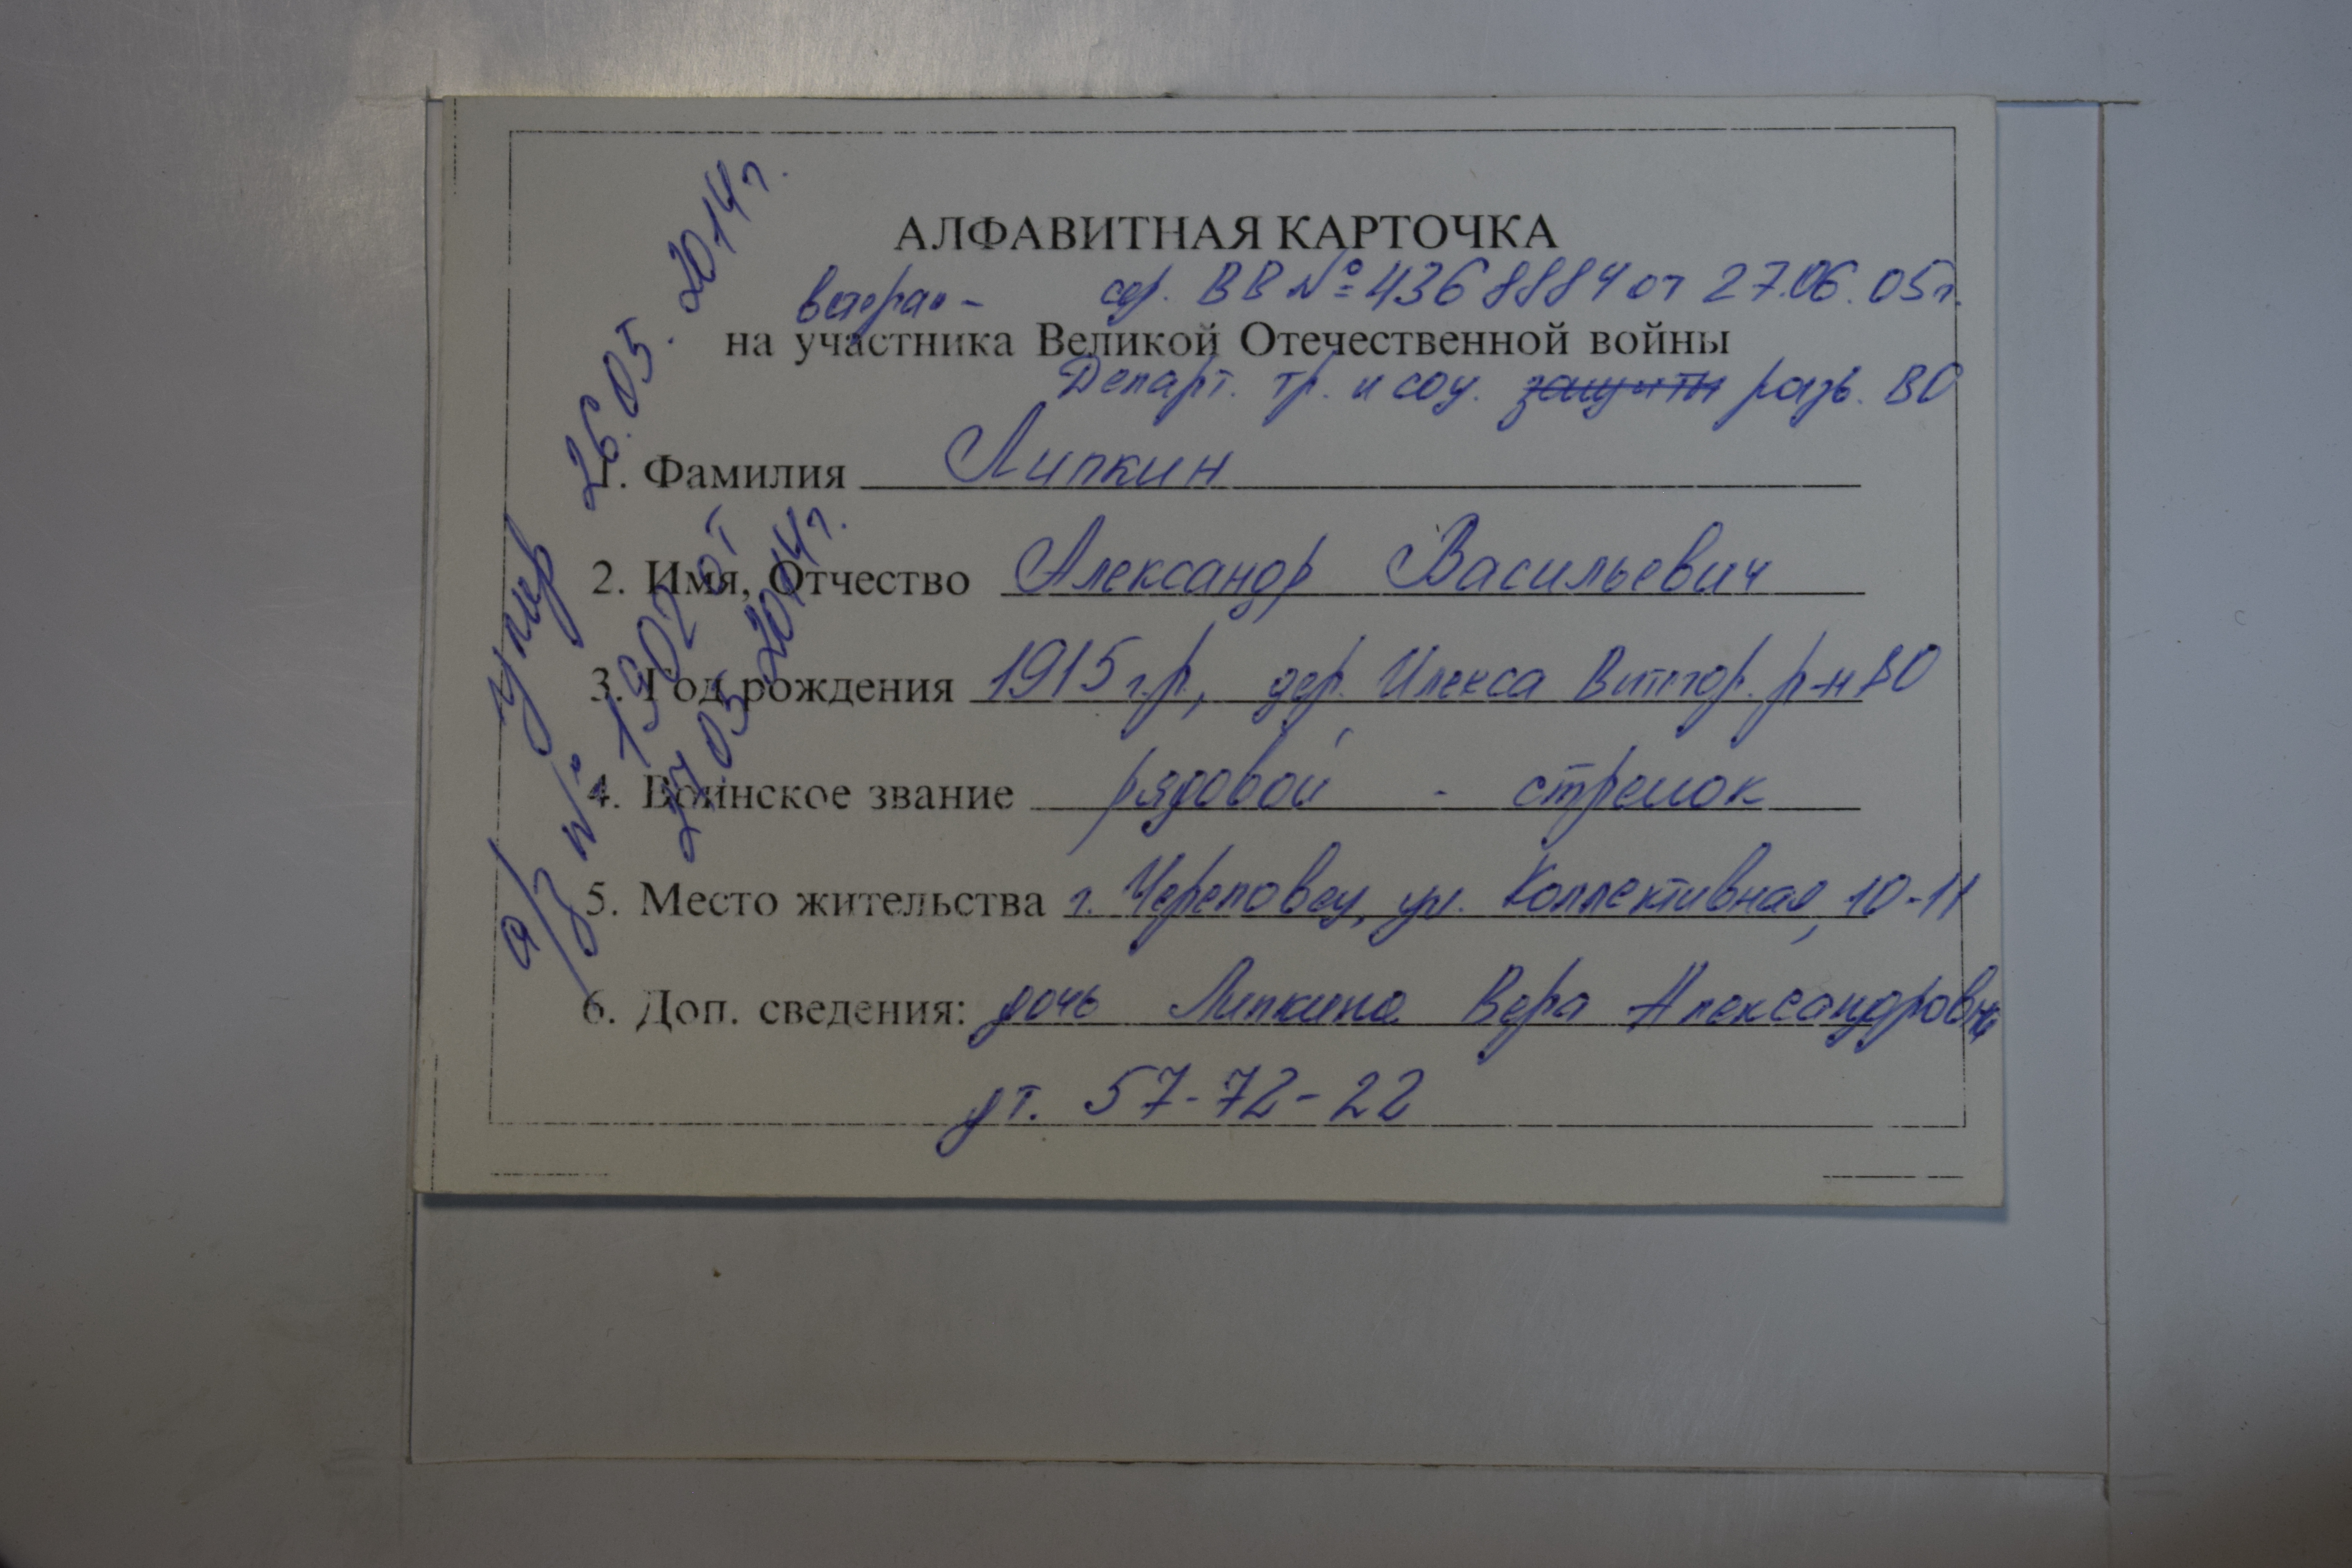 АЛФАВИТНАЯ КАРТОЧКА
ветеран – сер. ВВ № 4368884 от 27.06.05г.
на участника Великой Отечественной войны
Департ. тр. и соц. защиты разв. ВО
1. Фамилия Липкин
2. Имя, Отчество Александр Васильевич
3. Год рождения 1915 г.р., дер. Илекса Вытегор. р-н ВО
4. Воинское звание рядовой - стрелок
5. Место жительства г. Череповец, ул. Коллективная, 10-11
6. Доп. сведения: дочь Липкина Вера Александровна
дт. 57-72-22
умер 26.05.2014г.
а/з № 1902 от
27.05.2014г.